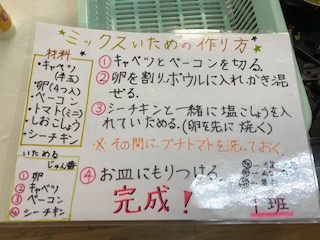 ミックスいための作り方
材料
・キャベツ
(半玉)
・卵(4つ入)
・ベーコン
・トマト(ミニ)
・しおこしょう
・シーチキン
いためる
じゅん番
① 卵
② キャベツ
③ ベーコン
④ シーチキン
① キャベツとベーコンを切る。
② 卵を割り、ボウルに入れ、かき混
ぜる。
③ シーチキンと一緒に塩こしょうを入
れていためる。(卵を先に焼く)
※ その間に、プチトマトを洗っておく。
④ お皿にもりつける。
完成!
1班